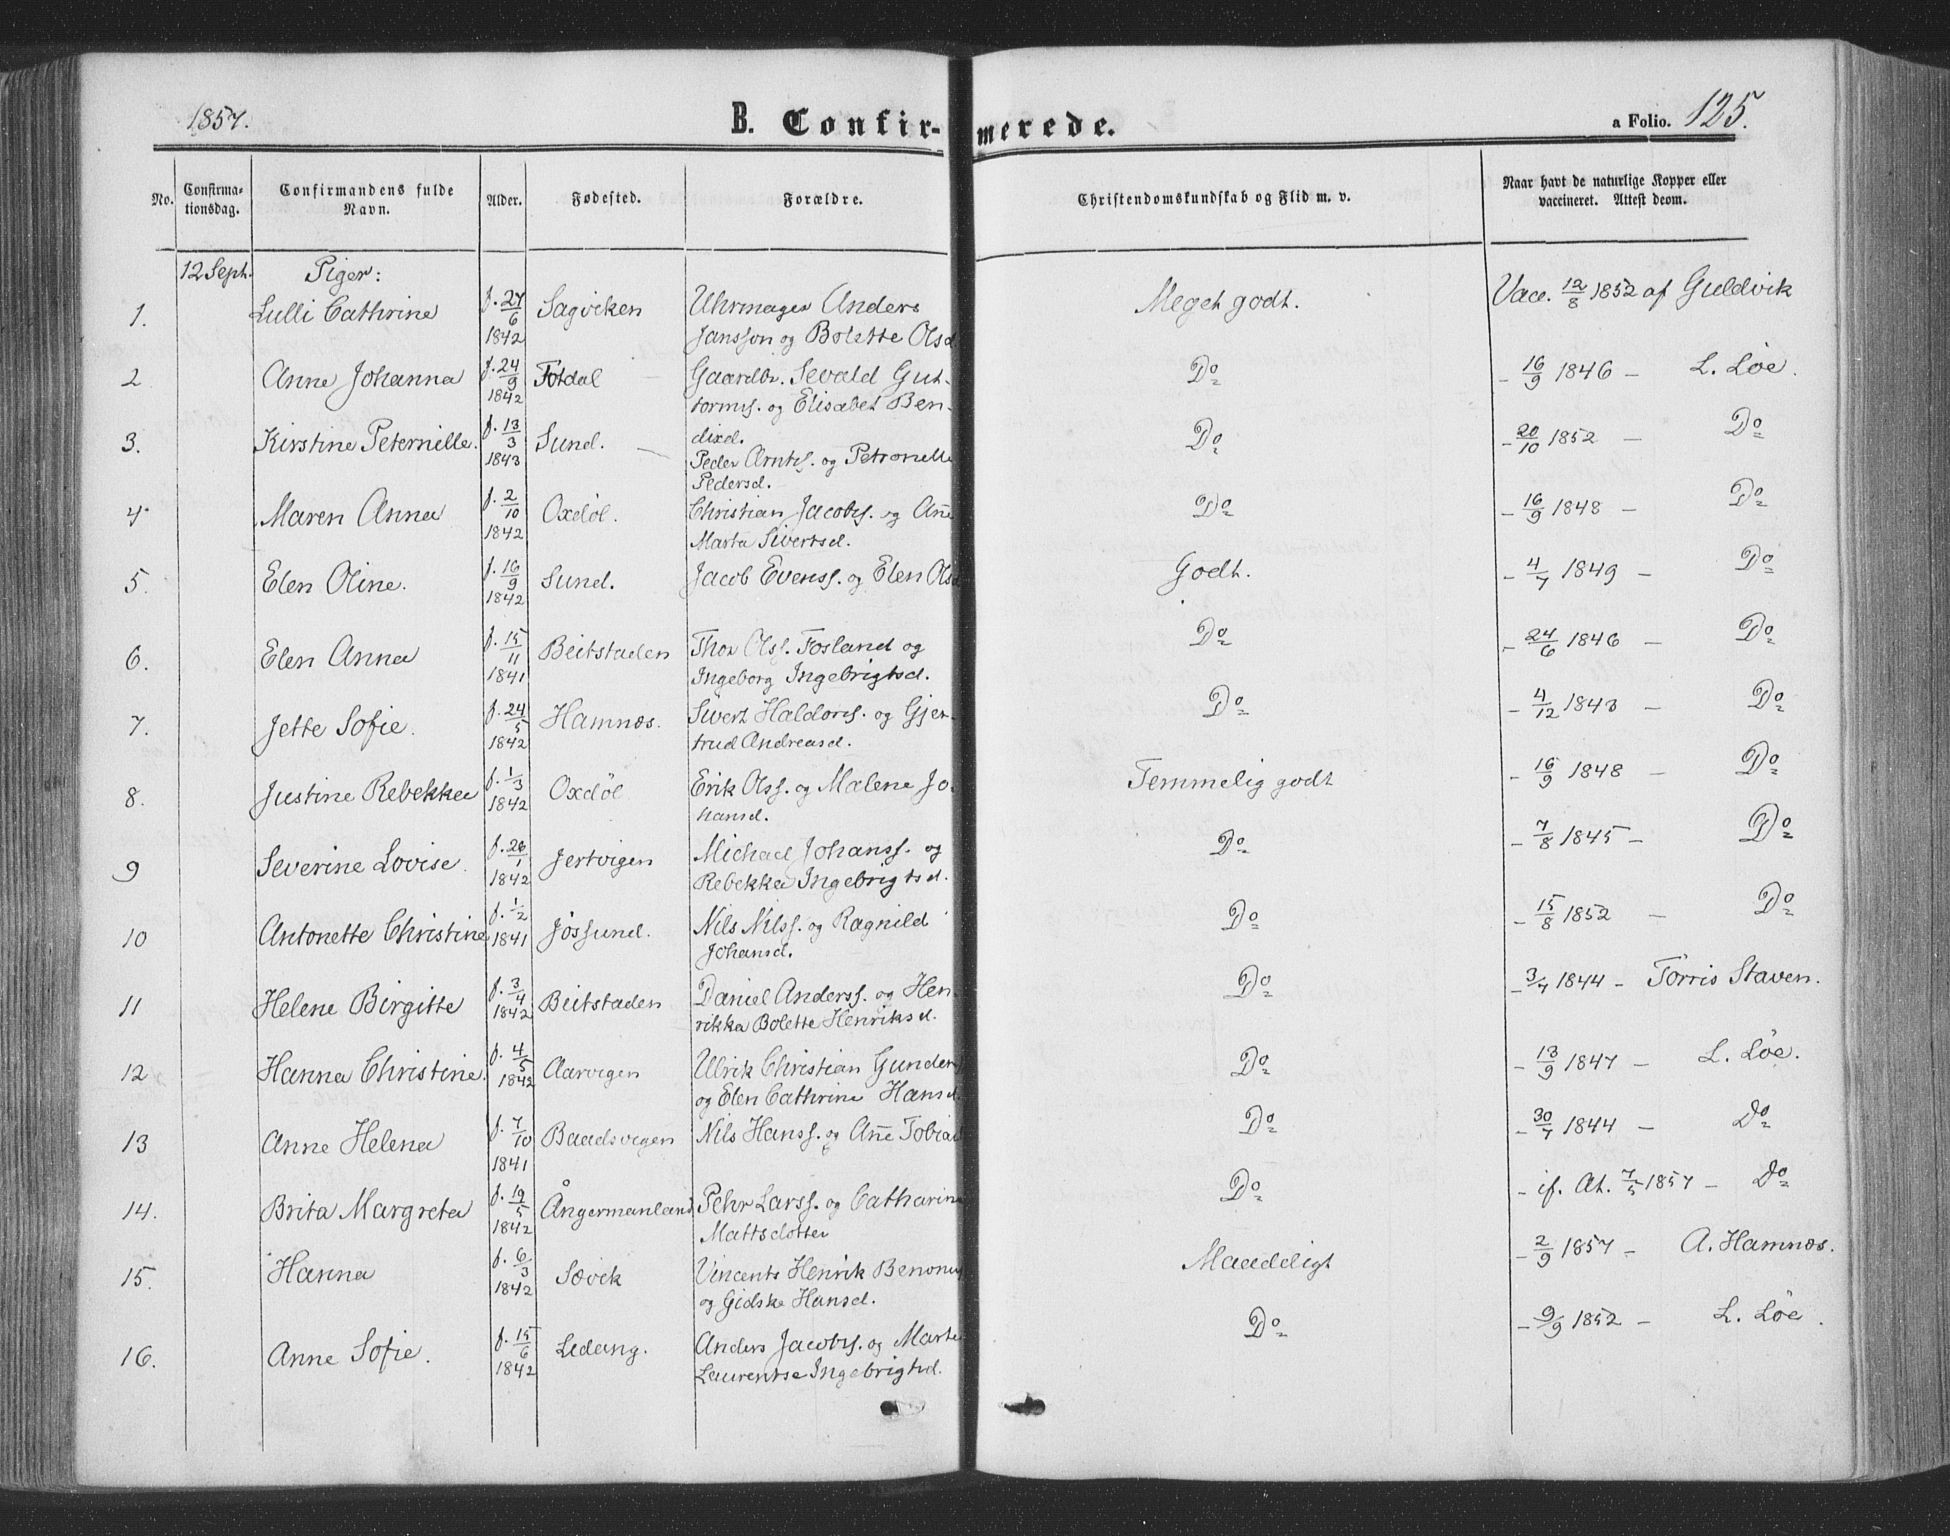 1857.
B. Confir-merede.
a Folio. 125.
No. Confirmationsdag. Confirmandens fulde Navn. Alder. Fødested. Forældre. Christendomskundskab og Flid m. v. Naar havt de naturlige Kopper eller vaccineret. Attest deom.
12 Sept. Piger:
1. Lulli Cathrine f. 27/6 1842 Sagviken Uhrmager Anders Jansson og Bolette Olsd. Meget godt. Vacc. 12/8 1852 af Guldvik
2 Anne Johanna f. 24/9 1842 Totdal Gaardbr. Sevald Guttorms. og Elisabet Bendixd. Do - 16/9 1846 - L. Löe.
3. Kirstine Peternille. f. 13/3 1843 Sund. Peder Arnts. og Petronelle Pedersd. Do - 20/10 1852 - Do
4 Maren Anna f. 2/10 1842 Oxdøl. Christian Jacobs. og Ane Marta Sivertsd. Do - 16/9 1848 - Do
5. Elen Oline. f. 16/9 1842 Sund. Jacob Evenss. og Elen Olsd Godt. - 4/7 1849 - Do
6. Elen Anna f. 15/11 1841 Beitstaden Thor Olss. Fosland og Ingeborg Ingebrigtsd. Do - 24/6 1846 - Do
7. Jette Sofie. f. 24/5 1842 Hamnæs. Sivert Haldors. og Gjertrud Andreasd. Do - 4/12 1843 - Do
8. Justine Rebekka f. 1/3 1842 Oxdøl Erik Olss. og Malene Johansd. Temmelig godt - 16/9 1848 - Do
9 Severine Lovise. f. 26/1 1842 Jertvigen Michael Johanss. og Rebekka Ingebrigtsd. Do - 7/8 1845 - Do
10 Antonette Christine f. 1/2 1841 Jössund. Nils Nilss. og Ragnild Johansd. Do - 15/8 1852 - Do
11 Helene Birgitte f. 3/4 1842 Beitstaden Daniel Anderss. og Henrikka Bolette Henriksd. Do - 3/7 1844 - Törris Staven.
12 Hanna Christine. f. 4/5 1842 Aarvigen Ulrik Christian Gunders og Elen Cathrine Hansd. Do - 13/9 1847 - L. Löe.
13 Anne Helena f. 7/10 1841 Baadsvigen Nils Hanss. og Ane Tobiasd Do - 30/7 1844 - Do
14. Brita Margreta f. 19/5 1842 Ångermanland Pehr Larss. og Catharina Mattsdotter Do - if. At. 7/5 1857 - Do
15. Hanna f. 6/3 1842 Sævik Vincents Henrik Benonis og Gidske Hansd. Maadeligt - 2/9 1857 - A. Hamnæs.
16. Anne Sofie. f. 15/6 1842 Ledang. Anders Jacobs. og Marte Laurentse Ingebrigtsd. Do - 9/9 1852 - L. Löe.